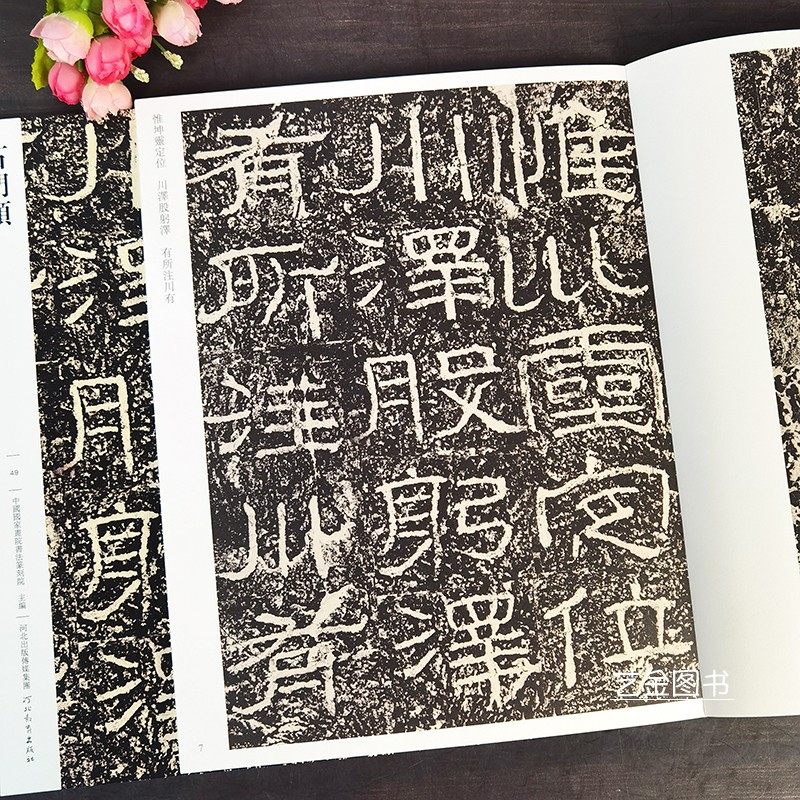 惟坤靈定位 川澤股躬澤 有所注川有
惟巛靈定位
川澤股躬澤
有所注川有
7
石門頌
49
中國國家畫院書法篆刻院 主編
河北出版傳媒集團
河北教育出版社
艺金图书